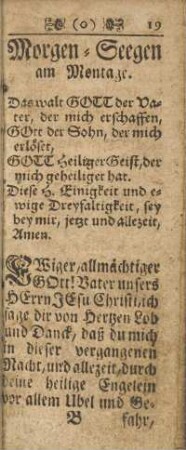 (o) 19
Morgen-Seegen
am Montage.
Das walt GOTT der Va-
ter, der mich erschaffen,
GOtt der Sohn, der mich
erlöset,
GOTT Heiliger Geist, der
mich geheiliget hat.
Diese H. Einigkeit und e-
wige Dreyfaltigkeit, sey
bey mir, jetzt und allezeit,
Amen.
EWiger, allmächtiger
GOtt! Vater unsers
HErrn JEsu Christi, ich
sage dir von Hertzen Lob
und Danck, daß du mich
in dieser vergangenen
Nacht, und allezeit, durch
deine heilige Engelein
vor allem Ubel und Ge-
B fahr,